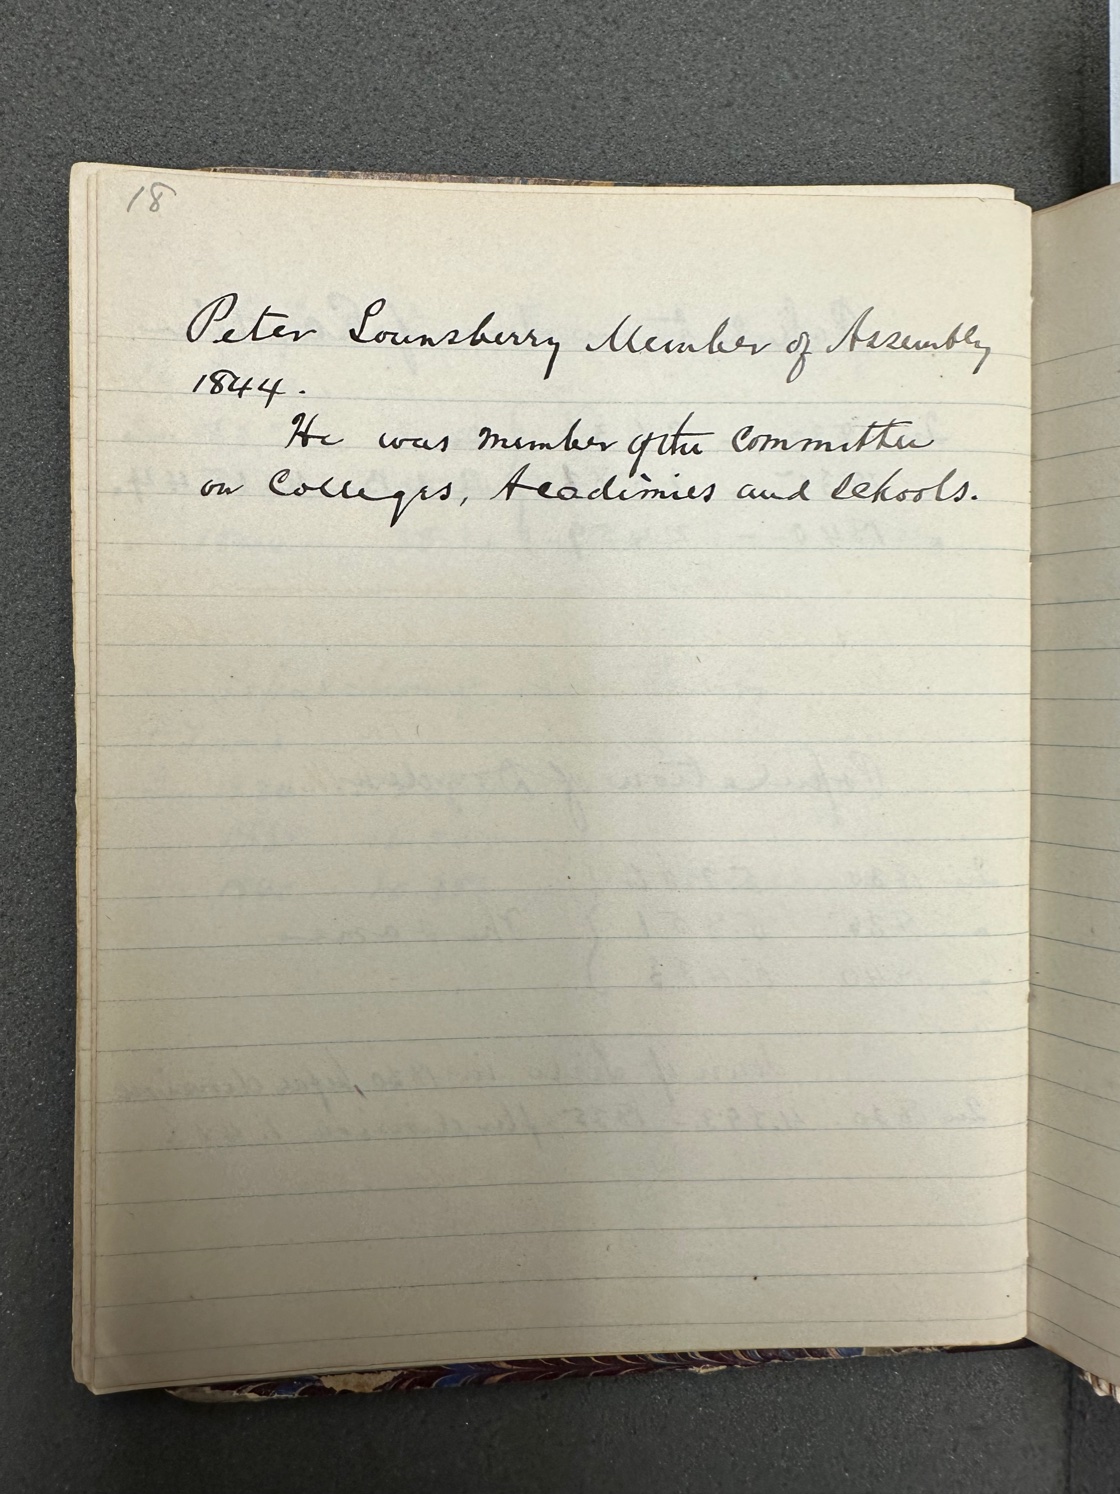 18
Peter Lounsberry Member of Assembly
1844.
He was member of the committee
on Colleges, Academies and Schools.